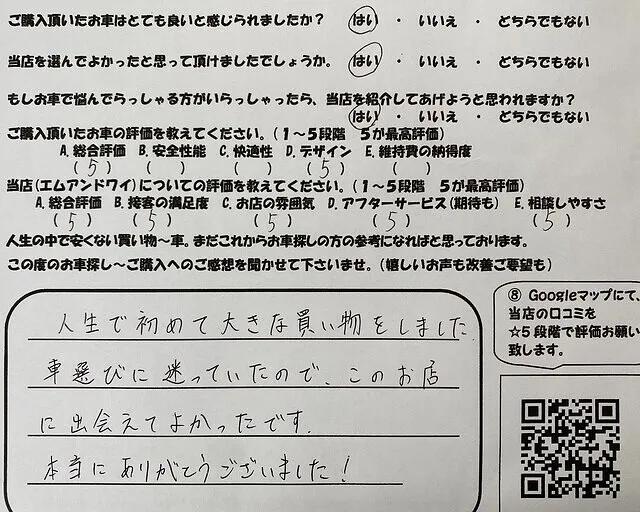 ご購入頂いたお車はとても良いと感じられましたか？ はい ・ いいえ ・ どちらでもない
当店を選んでよかったと思って頂けましたでしょうか。 はい ・ いいえ ・ どちらでもない
もしお車で悩んでらっしゃる方がいらっしゃったら、当店を紹介してあげようと思われますか？
はい ・ いいえ ・ どちらでもない
ご購入頂いたお車の評価を教えてください。（１～５段階 ５が最高評価）
A. 総合評価 B. 安全性能 C. 快適性 D. デザイン E. 維持費の納得度
（ 5 ） （ ） （ ） （ 5 ） （ ）
当店（エムアンドワイ）についての評価を教えてください。（１～５段階 ５が最高評価）
A. 総合評価 B. 接客の満足度 C. お店の雰囲気 D. アフターサービス（期待も） E. 相談しやすさ
（ 5 ） （ 5 ） （ 5 ） （ 5 ） （ 5 ）
人生の中で安くない買い物～車。まだこれからお車探しの方の参考になればと思っております。
この度のお車探し～ご購入へのご感想を聞かせて下さいませ。（嬉しいお声も改善ご要望も）
人生で初めて大きな買い物をしました
車選びに迷っていたので、このお店
に出会えてよかったです。
本当にありがとうございました！
⑧ Googleマップにて、
当店の口コミを
☆５段階で評価お願い
致します。